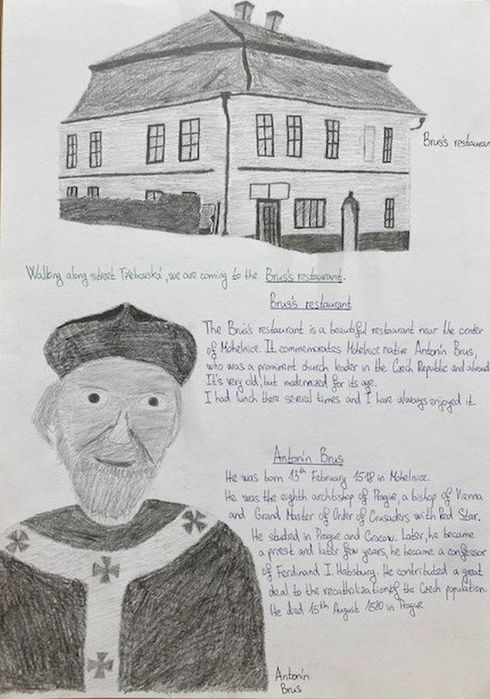 Brus's restauran
Walking along street Třebovská, we are coming to the Brus's restaurant.
Brus's restaurant
The Brus's restaurant is a beautiful restaurant near the center
of Mohelnice. It commemorates Mohelnice native Antonín Brus,
who was a prominent church leader in the Czech Republic and abroad
It's very old, but modernized for its age.
I had lunch there several times and I have always enjoyed it.
Antonín Brus
He was born 13th February 1518 in Mohelnice.
He was the eighth archbishop of Prague, a bishop of Vienna
and Grand Master of Order of Crusaders with Red Star.
He studied in Prague and Cracow. Later, he became
a priest and later few years, he became a confessor
of Ferdinand I. Habsburg. He contributed a great
deal to the recatholization of the Czech population.
He died 15th August 1580 in Prague
Antonín
Brus